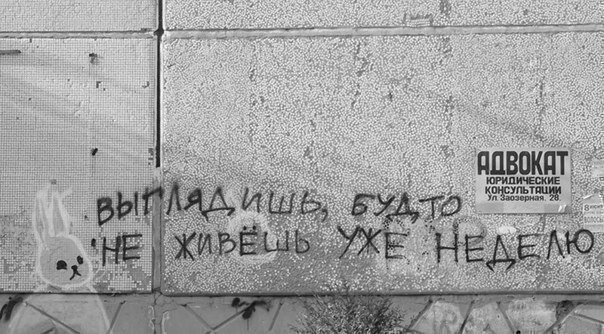 ВЫГЛЯДИШЬ, БУДТО
НЕ ЖИВЁШЬ УЖЕ НЕДЕЛЮ
АДВОКАТ
ЮРИДИЧЕСКИЕ
КОНСУЛЬТАЦИИ
Ул Заозерная. 28.